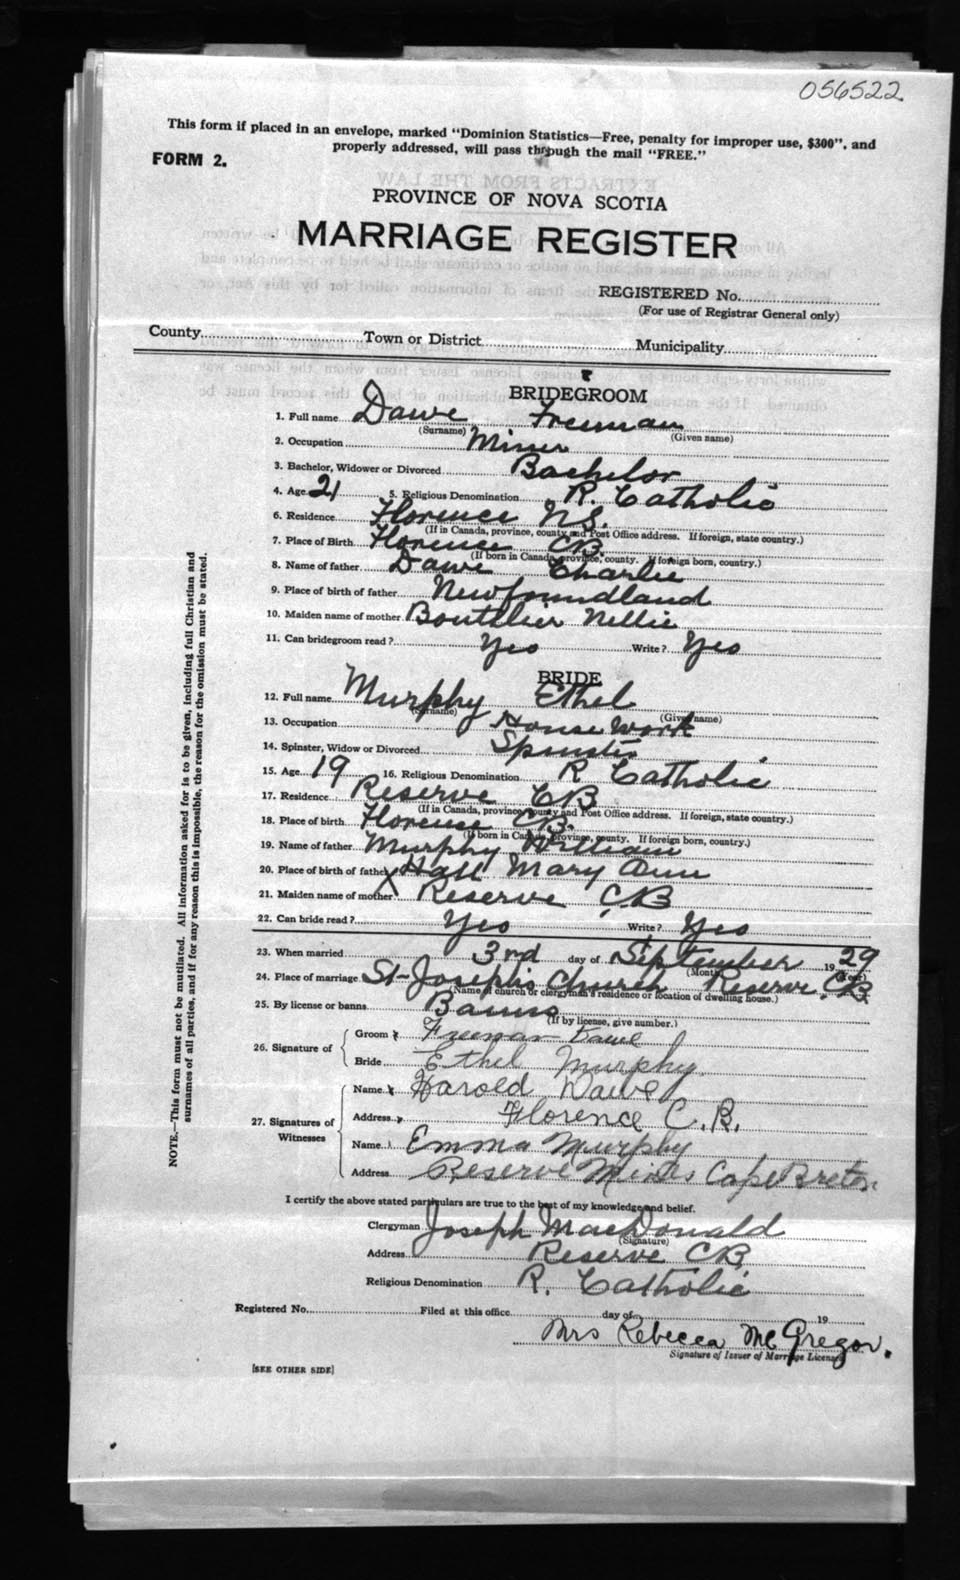 056522
This form if placed in an envelope, marked "Dominion Statistics—Free, penalty for improper use, $300", and
properly addressed, will pass through the mail "FREE."
FORM 2.
PROVINCE OF NOVA SCOTIA
MARRIAGE REGISTER
REGISTERED No.
(For use of Registrar General only)
County Town or District Municipality
BRIDEGROOM
1. Full name Dawe Freeman
(Surname) (Given name)
2. Occupation Miner
3. Bachelor, Widower or Divorced Bachelor
4. Age 21 5. Religious Denomination R. Catholic
6. Residence Florence N.S.
(If in Canada, province, county and Post Office address. If foreign, state country.)
7. Place of Birth Florence C.B.
(If born in Canada, province, county. If foreign born, country.)
8. Name of father Dawe Charlie
9. Place of birth of father Newfoundland
10. Maiden name of mother Boutilier Nellie
11. Can bridegroom read? Yes Write? Yes
BRIDE
12. Full name Murphy Ethel
(Surname) (Given name)
13. Occupation House Work
14. Spinster, Widow or Divorced Spinster
15. Age 19 16. Religious Denomination R Catholic
17. Residence Reserve CB
(If in Canada, province, county and Post Office address. If foreign, state country.)
18. Place of birth Florence CB.
(If born in Canada, province, county. If foreign born, country.)
19. Name of father Murphy William
20. Place of birth of father Hall Mary Ann
21. Maiden name of mother Reserve C.B
22. Can bride read? Yes Write? Yes
23. When married 3rd day of September 1929
(Month) (Year)
24. Place of marriage St-Joseph's Church Reserve C.B.
(Name of church or clergyman's residence or location of dwelling house.)
25. By license or banns Banns
(If by license, give number.)
26. Signature of Groom x Freeman Dawe
Bride Ethel Murphy.
27. Signatures of Witnesses
Name x Harold Dawe
Address Florence C.B.
Name Emma Murphy
Address Reserve Mines Cape Breton
I certify the above stated particulars are true to the best of my knowledge and belief.
Clergyman Joseph MacDonald
(Signature)
Address Reserve CB
Religious Denomination R. Catholic
Registered No. Filed at this office day of 19
Mrs Rebecca McGregor.
Signature of Issuer of Marriage Licenses
[SEE OTHER SIDE]
NOTE.—This form must not be mutilated. All information asked for is to be given, including full Christian and
surnames of all parties, and if for any reason this is impossible, the reason for the omission must be stated.